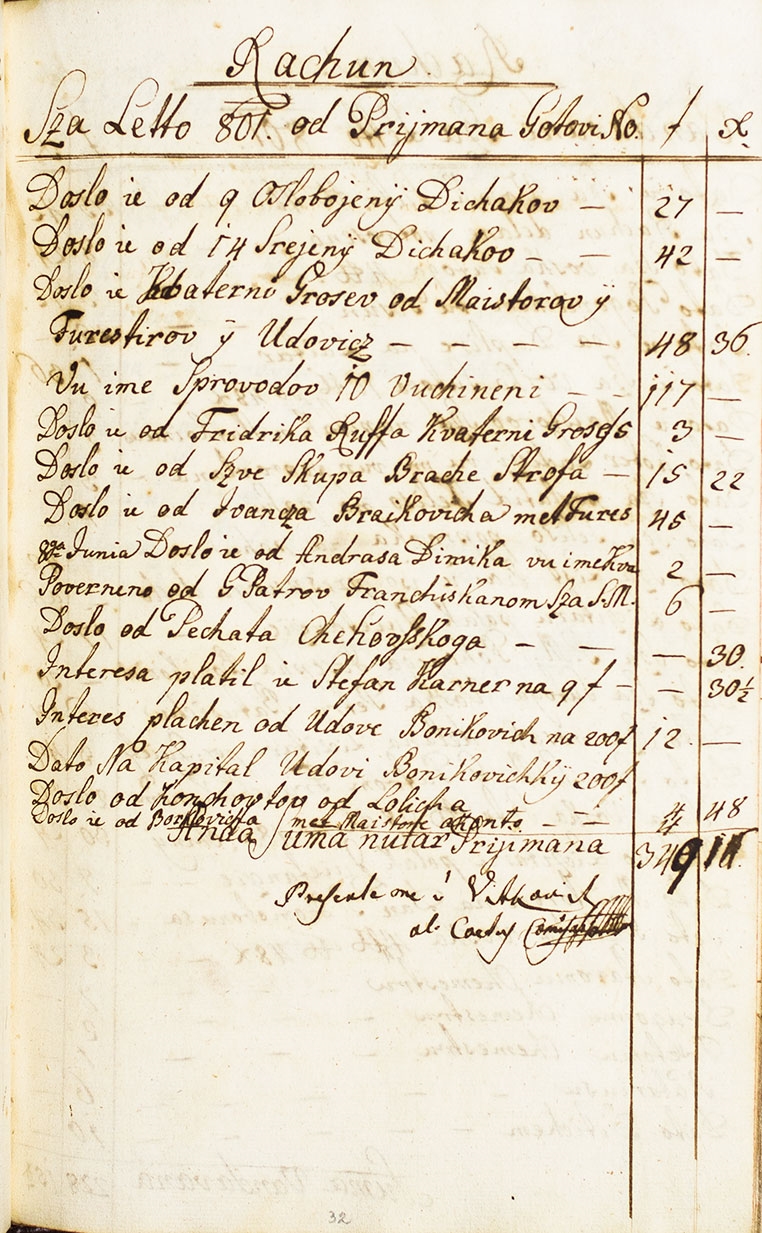 Rachun
Sza Letto 801. od Prijmana Gotovi No. f x
Doslo ie od 9 Oslobojeniÿ Dichakov – 27 –
Doslo ie od 14 Srejeniÿ Dichakov – – 42 –
Doslo ie Kvaterni Grosev od Maistorov ÿ
Furestirov ÿ Udovicz – – – – 48 36.
Vu ime Sprovodov 10 Vuchineni – – 117 –
Doslo ie od Fridrika Ruffa Kvaterni 3 –
Doslo ie od Szve Skupa Brache Strofa – 15 22
Doslo ie od Ivancza Braikovicha met Fures 45 –
Junia Doslo ie od Andrasa Dimika vu ime Kva 2 –
Poverneno od G Patrov Franchiskanom Sza S.M. 6 –
Doslo od Pechata – – – 30.
Interesa platil ie Stefan Karner na 9 f – – 30½
Interes plachen od Udove Bonikovich na 200f 12. –
Dato Na Kapital Udovi Bonikovichkÿ 200f
Doslo od od Lolicha
Doslo ie od met Maistorie – – 4 48
Suma nutar Prijimana 349
Presente me